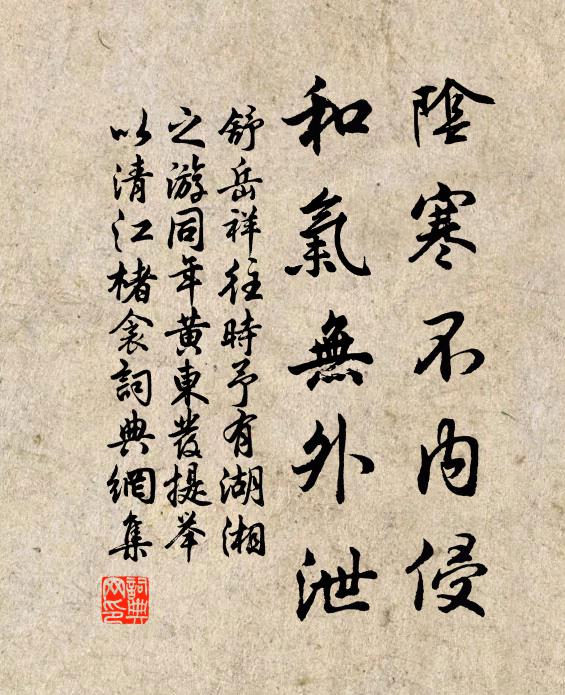 陰寒不内侵
和氣無外泄
舒岳祥往時予有湖湘
之游同年黄東發提举
以清江楮衾詞典網集
詞典
网印